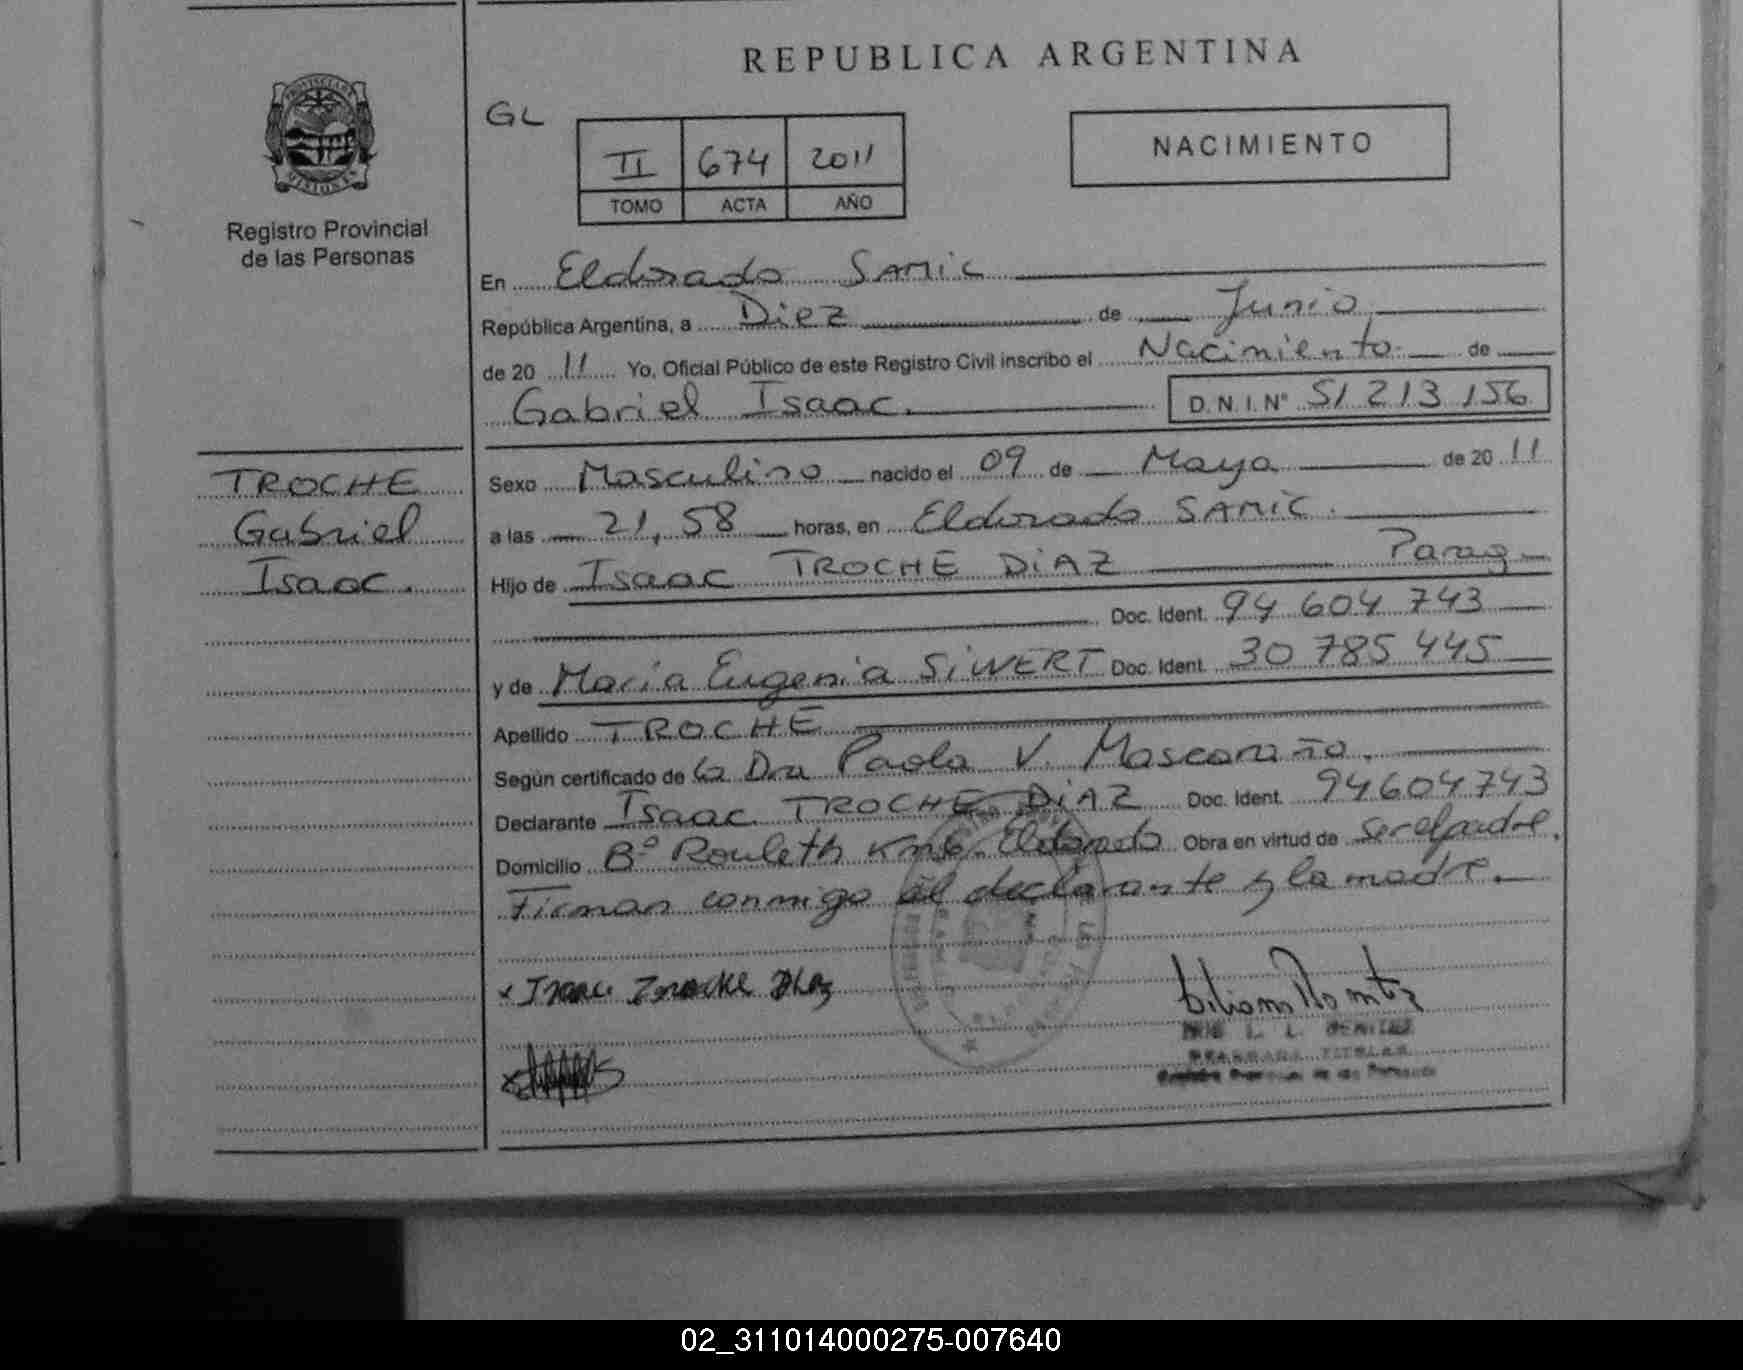 REPUBLICA ARGENTINA
GL
II 674 2011
TOMO ACTA AÑO
NACIMIENTO
PROVINCIA DE
MISIONES
Registro Provincial
de las Personas
En Eldorado SAMIC
República Argentina, a Diez de Junio
de 20 11 Yo, Oficial Público de este Registro Civil inscribo el Nacimiento de
Gabriel Isaac. D.N.I.Nº 51 213 156
TROCHE
Gabriel
Isaac.
Sexo Masculino nacido el 09 de Mayo de 20 11
a las 21,58 horas, en Eldorado SAMIC.
Hijo de Isaac TROCHE DiAZ Parag
Doc. Ident. 94 604 743
y de María Eugenia SiWERT Doc. Ident. 30 785 445
Apellido TROCHE
Según certificado de la Dra Paola V.
Declarante Isaac TROCHE DiAZ Doc. Ident. 94604743
Domicilio Bº Rouleth Km 6. Eldorado Obra en virtud de ser el padre.
Firman conmigo el declarante y la madre.
x Isaac Troche Diaz
02_311014000275-007640